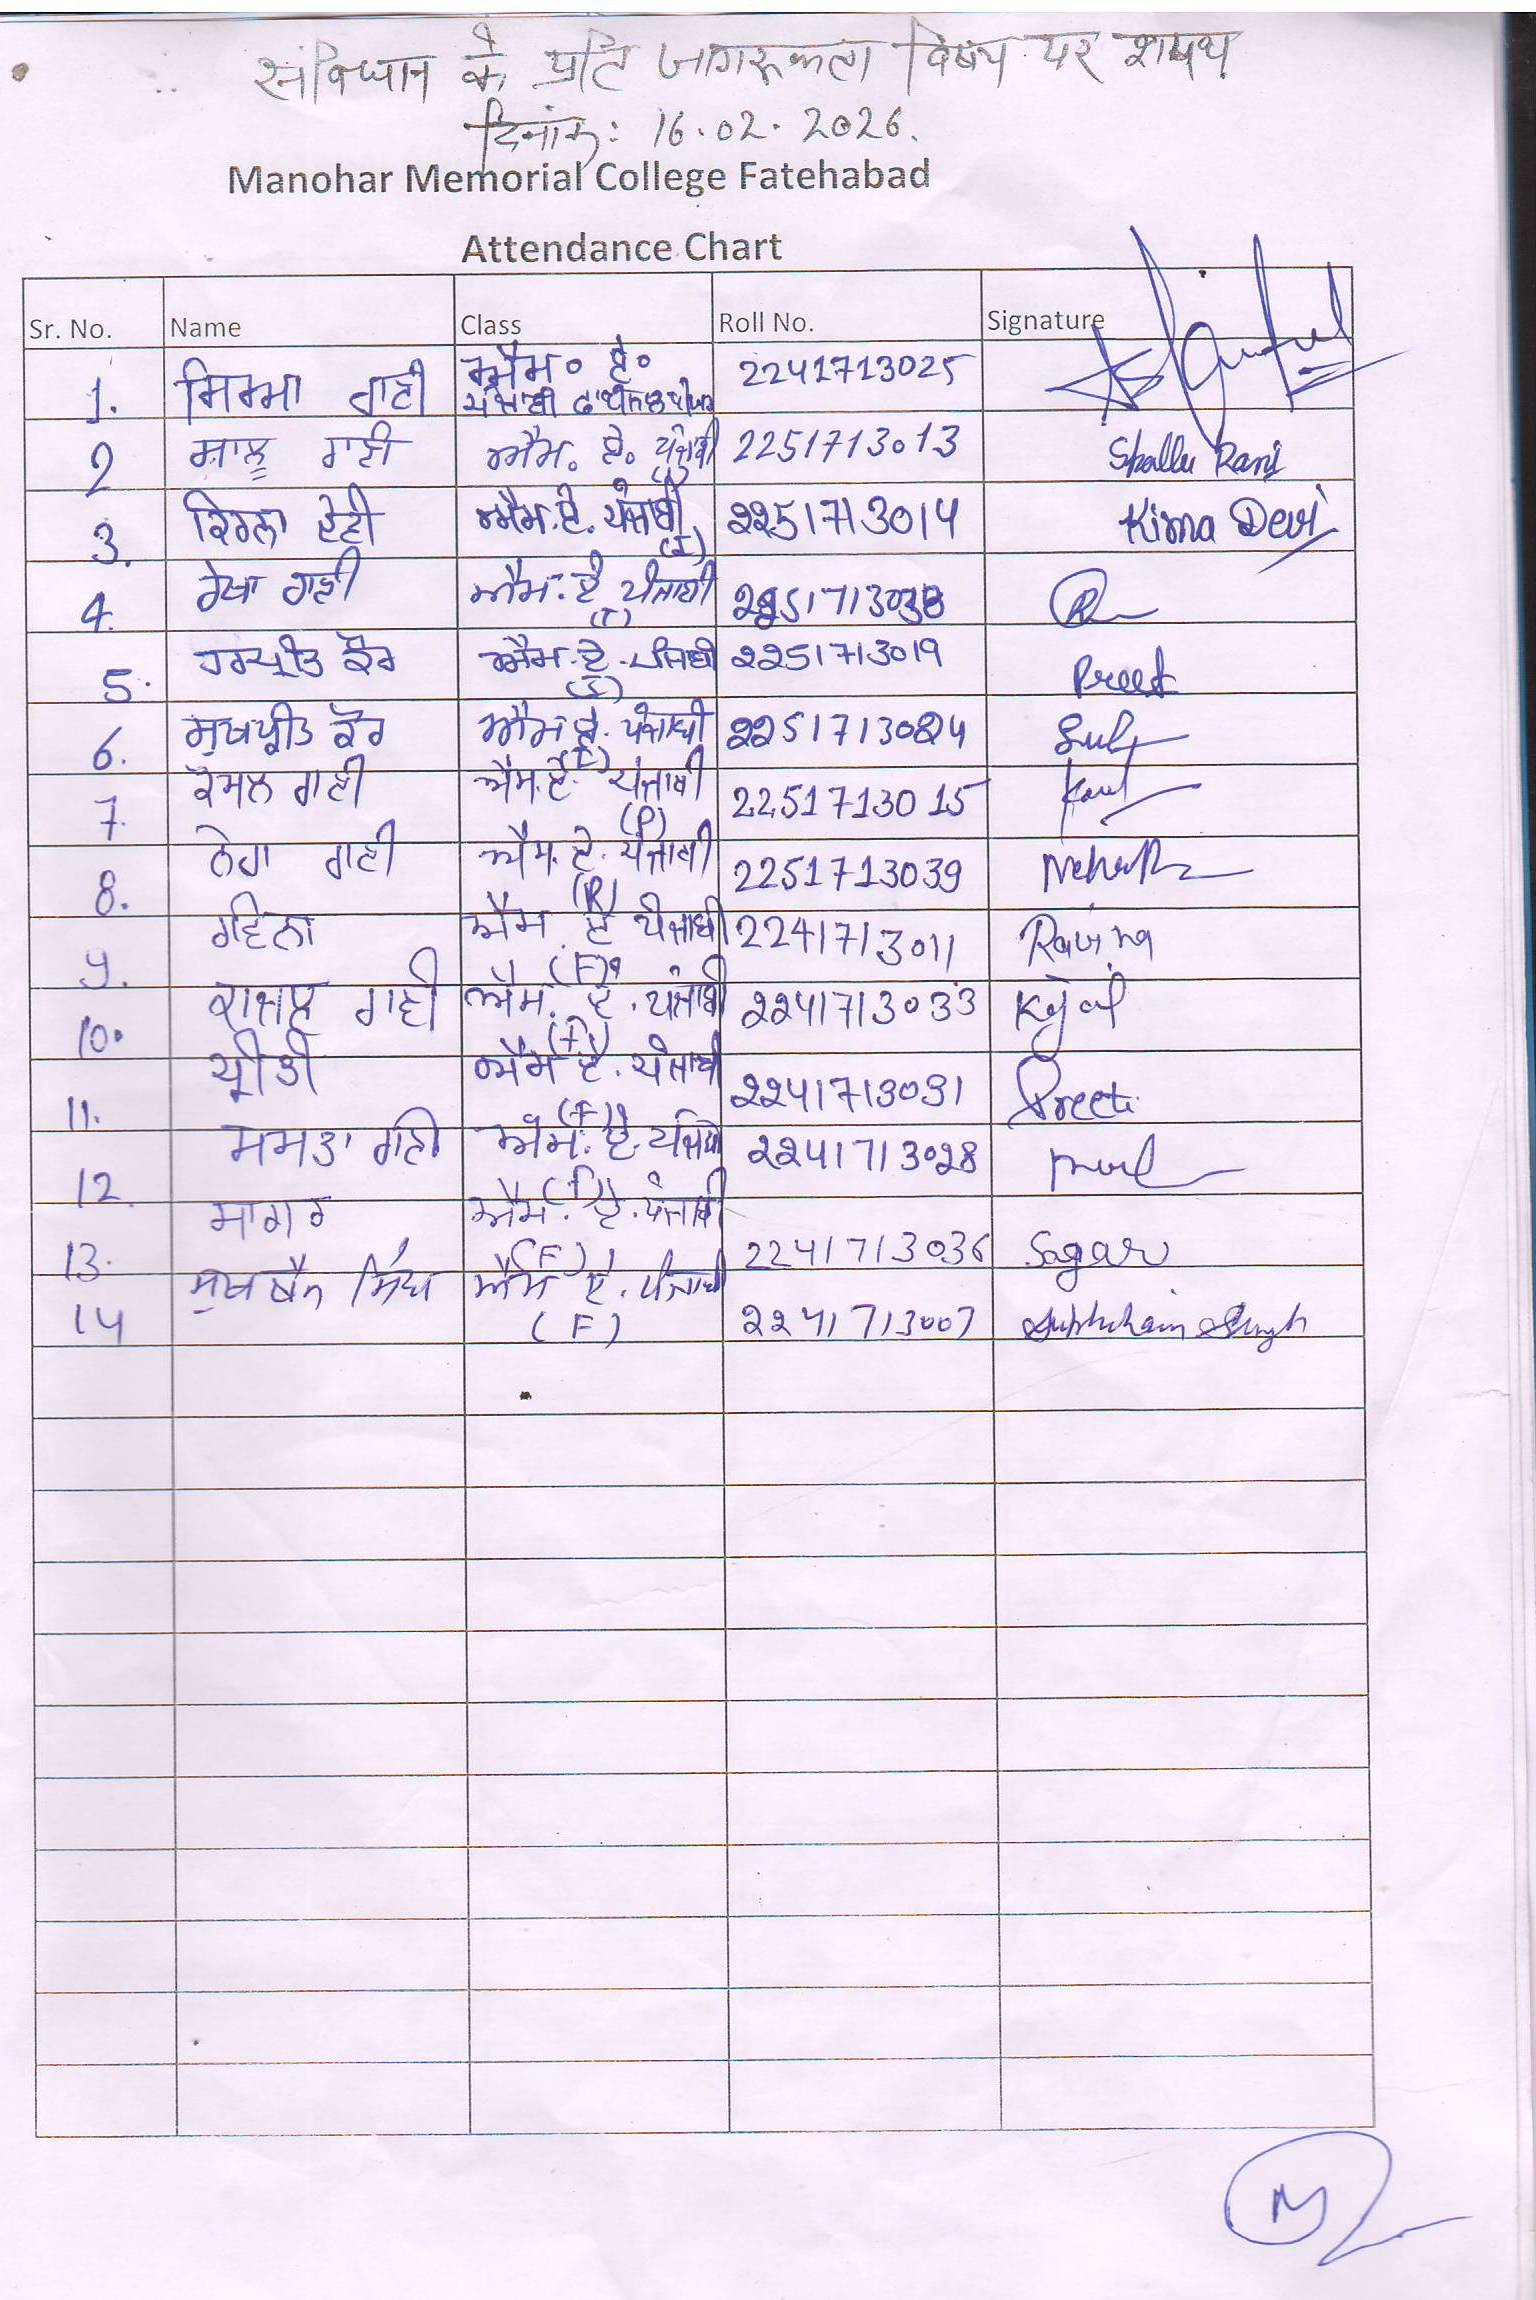 संविधान के प्रति जागरूकता विषय पर शपथ
दिनांक: 16.02.2026.
Manohar Memorial College Fatehabad
Attendance Chart
Sr. No. Name Class Roll No. Signature
1. ਸਿਰਮਾ ਰਾਣੀ ਐਮ॰ ਏ॰ ਪੰਜਾਬੀ 2241713025
2 ਸ਼ਾਲੂ ਰਾਣੀ ਐਮ. ਏ. ਪੰਜਾਬੀ 2251713013 Shallu Rani
3. ਕਿਰਨਾ ਦੇਵੀ ਐਮ.ਏ. ਪੰਜਾਬੀ (I) 2251713014 Kirna Devi
4. ਰੇਖਾ ਰਾਣੀ ਐਮ.ਏ ਪੰਜਾਬੀ (I) 2251713038
5. ਹਰਪ੍ਰੀਤ ਕੌਰ ਐਮ.ਏ. ਪੰਜਾਬੀ 2251713019 Preet
6. ਸੁਖਪ੍ਰੀਤ ਕੌਰ ਐਮ ਏ. ਪੰਜਾਬੀ 2251713024
7. ਕੋਮਲ ਰਾਣੀ ਐਮ.ਏ. ਪੰਜਾਬੀ (P) 2251713015
8. ਨੇਹਾ ਰਾਣੀ ਐਮ.ਏ. ਪੰਜਾਬੀ 2251713039
9. ਰਵਿਨਾ ਐਮ. ਏ ਪੰਜਾਬੀ (F) 2241713011 Ravina
10. ਕਾਜਲ ਰਾਣੀ ਐਮ. ਏ. ਪੰਜਾਬੀ (F) 2241713033 Kajal
11. ਪ੍ਰੀਤੀ ਐਮ ਏ. ਪੰਜਾਬੀ (F) 2241713031 Preeti
12. ਮਮਤਾ ਰਾਣੀ ਐਮ. ਏ. ਪੰਜਾਬੀ (F) 2241713028
13. ਸਾਗਰ ਐਮ. ਏ. ਪੰਜਾਬੀ (F) 2241713036 Sagar
14 ਸੁਖਚੈਨ ਸਿੰਘ ਐਮ ਏ. ਪੰਜਾਬੀ (F) 2241713007 Sukhchain Singh